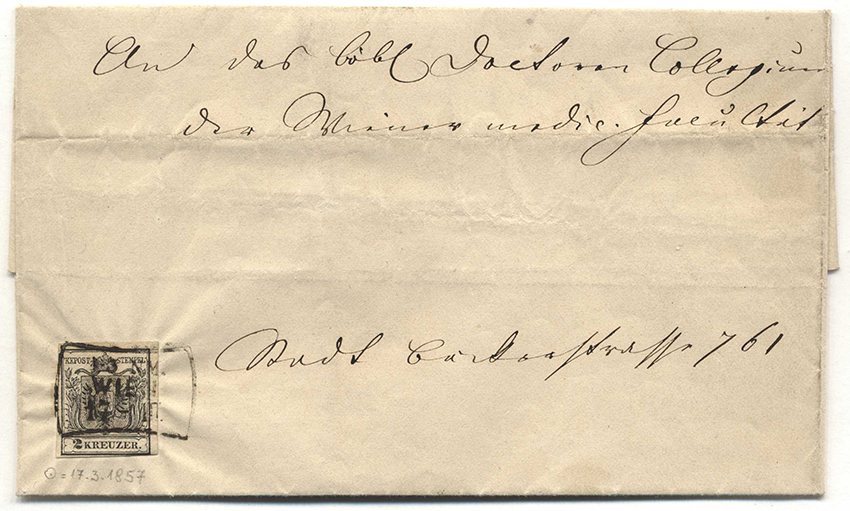 An das löbl Doctoren Collegium
der Wiener medic. Facultät
Stadt Bäckerstrasse 761
KKPOST-STEMPEL
WIE
17
2 KREUZER.
⊙=17.3.1857